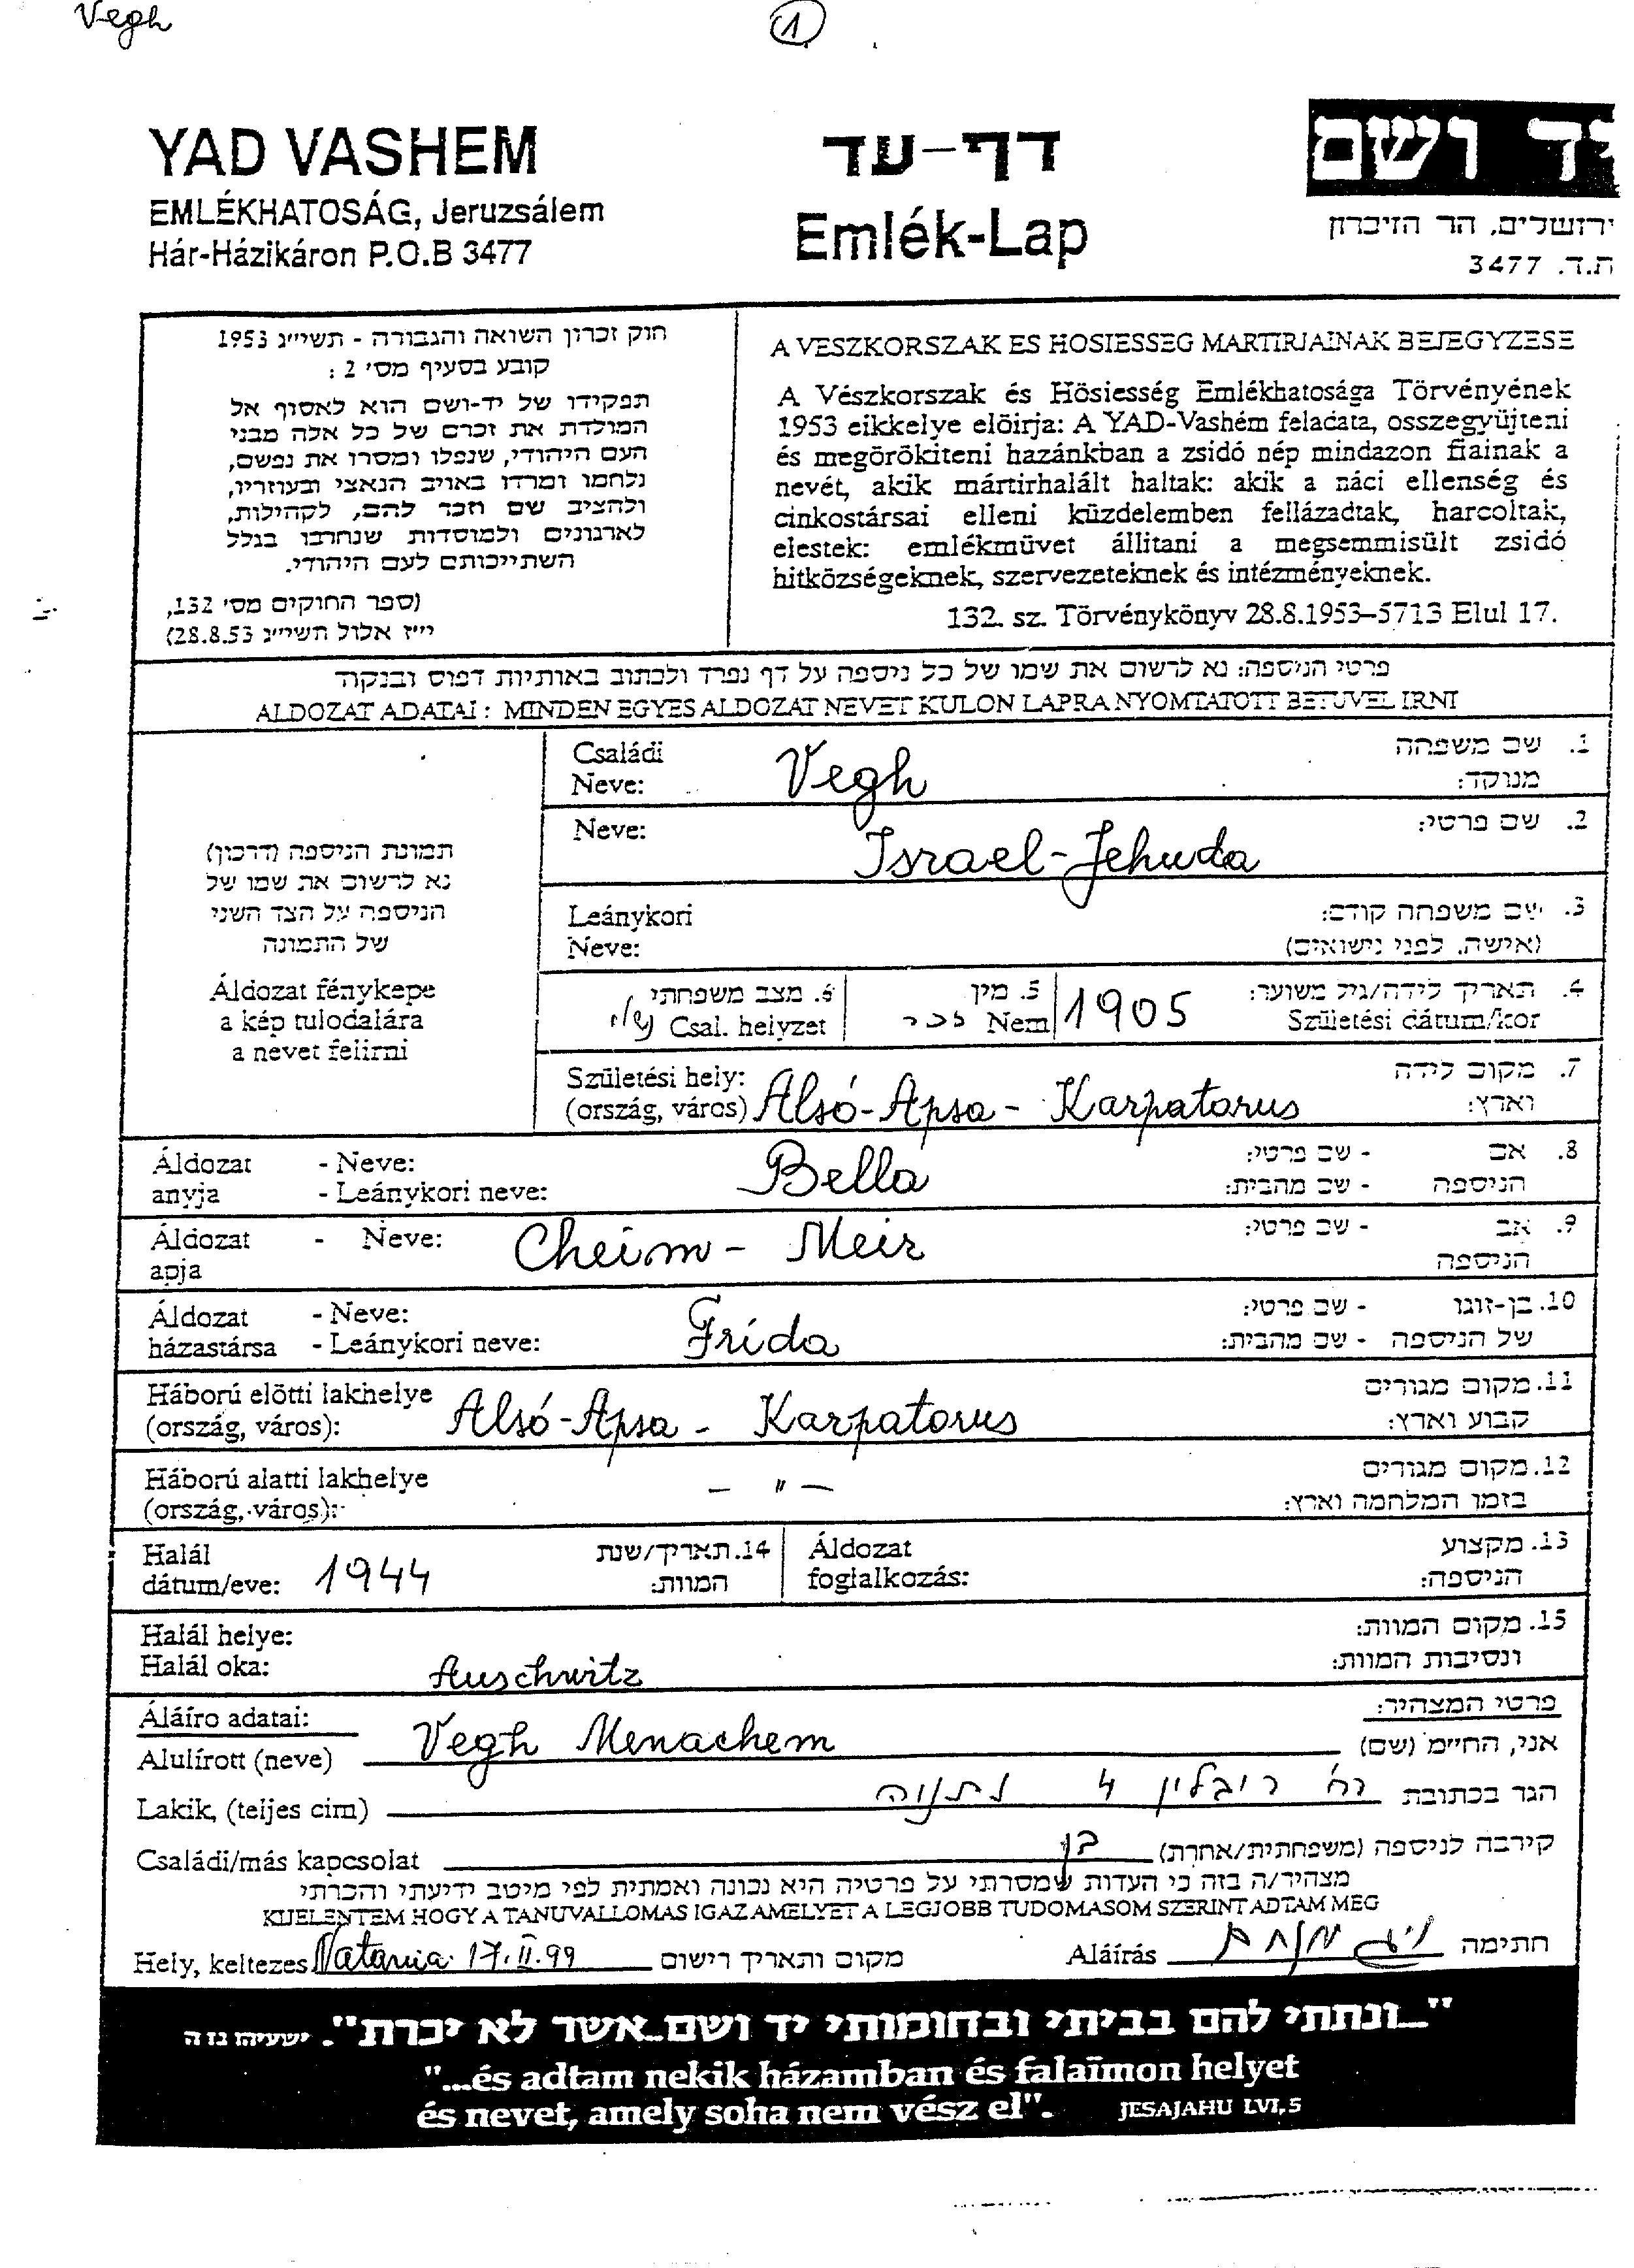 Vegh
1
YAD VASHEM
EMLÉKHATOSÁG, Jeruzsálem
Hár-Házikáron P.O.B 3477
דף-עד
Emlék-Lap
יד ושם
ירושלים, הר הזיכרון
ת.ד. 3477
חוק זכרון השואה והגבורה - תשי״ג 1953
קובע בסעיף מס׳ 2 :
תפקידו של יד-ושם הוא לאסוף אל
המולדת את זכרם של כל אלה מבני
העם היהודי, שנפלו ומסרו את נפשם,
נלחמו ומרדו באויב הנאצי ובעוזריו,
ולהציב שם וזכר להם, לקהילות,
לארגונים ולמוסדות שנחרבו בגלל
השתייכותם לעם היהודי.
(ספר החוקים מס׳ 132,
י״ז אלול תשי״ג 28.8.53)
A VESZKORSZAK ES HOSIESSEG MARTIRJAINAK BEJEGYZESE
A Vészkorszak és Hösiesség Emlékhatosága Törvényének
1953 eikkelye elöirja: A YAD-Vashém feladata, osszegyüjteni
és megörökiteni hazánkban a zsidó nép mindazon fiainak a
nevét, akik mártirhalált haltak: akik a náci ellenség és
cinkostársai elleni küzdelemben fellázadtak, harcoltak,
elestek: emlékmüvet állitani a megsemmisült zsidó
hitközségeknek, szervezeteknek és intézményeknek.
132. sz. Törvénykönyv 28.8.1953–5713 Elul 17.
פרטי הניספה: נא לרשום את שמו של כל ניספה על דף נפרד ולכתוב באותיות דפוס ובנקוד
ALDOZAT ADATAI : MINDEN EGYES ALDOZAT NEVET KULON LAPRA NYOMTATOTT BETUVEL IRNI
תמונת הניספה (דרכון)
נא לרשום את שמו של
הניספה על הצד השני
של התמונה
Áldozat fénykepe
a kép tulodalára
a nevet felirni
Családi Vegh 1. שם משפחה
Neve: מנוקד:
Neve: Israel-Jehuda 2. שם פרטי:
Leánykori 3. שם משפחה קודם:
Neve: (אישה, לפני נישואים)
6. מצב משפחתי 5. מין 4. תאריך לידה/גיל משוער:
נשוי Csal. helyzet זכר Nem 1905 Születési dátum/kor
Születési hely: 7. מקום לידה
(ország, város) Alsó-Apsa - Karpatorus וארץ:
Áldozat - Neve: Bella 8. אם - שם פרטי:
anyja - Leánykori neve: הניספה - שם מהבית:
Áldozat - Neve: Cheim - Meir 9. אב - שם פרטי:
apja הניספה
Áldozat - Neve: Frida 10. בן-זוגו - שם פרטי:
házastársa - Leánykori neve: של הניספה - שם מהבית:
Háború elötti lakhelye 11. מקום מגורים
(ország, város): Alsó-Apsa - Karpatorus קבוע וארץ:
Háború alatti lakhelye - " - 12. מקום מגורים
(ország, város): בזמן המלחמה וארץ:
Halál 14. תאריך/שנת Áldozat 13. מקצוע
dátum/eve: 1944 המוות: foglalkozás: הניספה:
Halál helye: 15. מקום המוות:
Halál oka: Auschwitz ונסיבות המוות:
Áláíro adatai: פרטי המצהיר:
Alulírott (neve) Vegh Menachem אני, החיימ (שם)
Lakik, (teljes cim) רח׳ ריבלין 4 נתניה הגר בכתובת
Családi/más kapcsolat בן קירבה לניספה (משפחתית/אחרת)
מצהיר/ה בזה כי העדות שמסרתי על פרטיה היא נכונה ואמתית לפי מיטב ידיעתי והכרתי
KIJELENTEM HOGY A TANUVALLOMAS IGAZ AMELYET A LEGJOBB TUDOMASOM SZERINT ADTAM MEG
Hely, keltezes Natania 17.II.99 מקום ותאריך רישום Aláírás ויג מנחם חתימה
"...ונתתי להם בביתי ובחומותי יד ושם...אשר לא יכרת". ישעיהו נו ה
"...és adtam nekik házamban és falaimon helyet
és nevet, amely soha nem vész el". JESAJAHU LVI,5